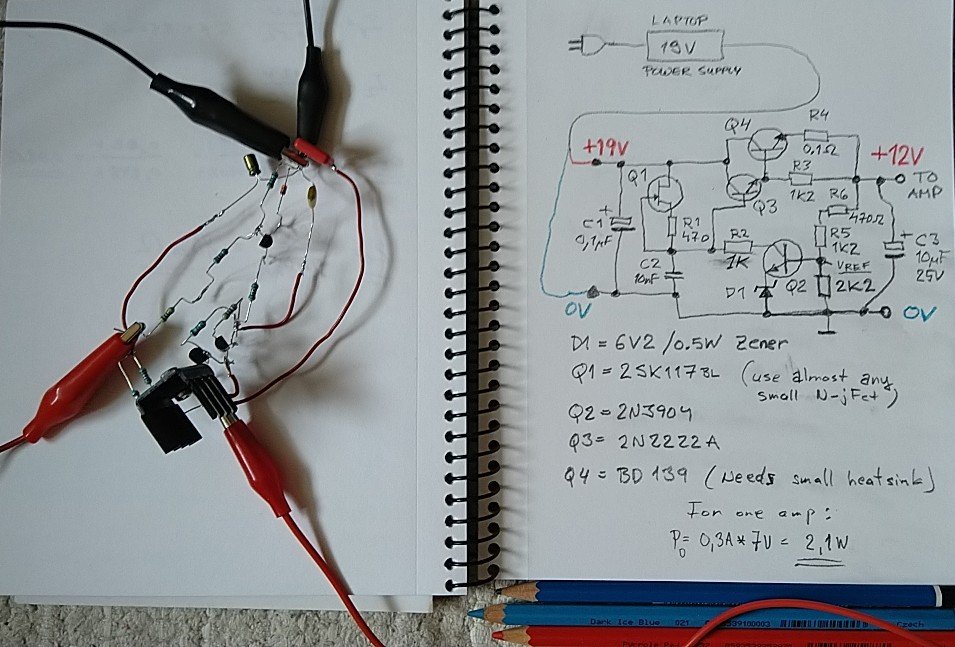 LAPTOP
19V
POWER SUPPLY
Q4
R4
0,1Ω
+19V
+12V
TO
AMP
Q1
R3
1K2
Q3
R6
470Ω
C1
0,1µF
+
R1
470
R2
1K
R5
1K2
+
C3
10µF
25V
C2
10µF
VREF
D1
Q2
2K2
0V
0V
D1 = 6V2 /0.5W Zener
Q1 = 2SK117BL (use almost any
small N-jFet)
Q2 = 2N3904
Q3 = 2N2222A
Q4 = BD 139 (Needs small heatsink)
For one amp:
PD = 0,3A*7V = 2,1W
Dark Ice Blue 021
9100003
Czech